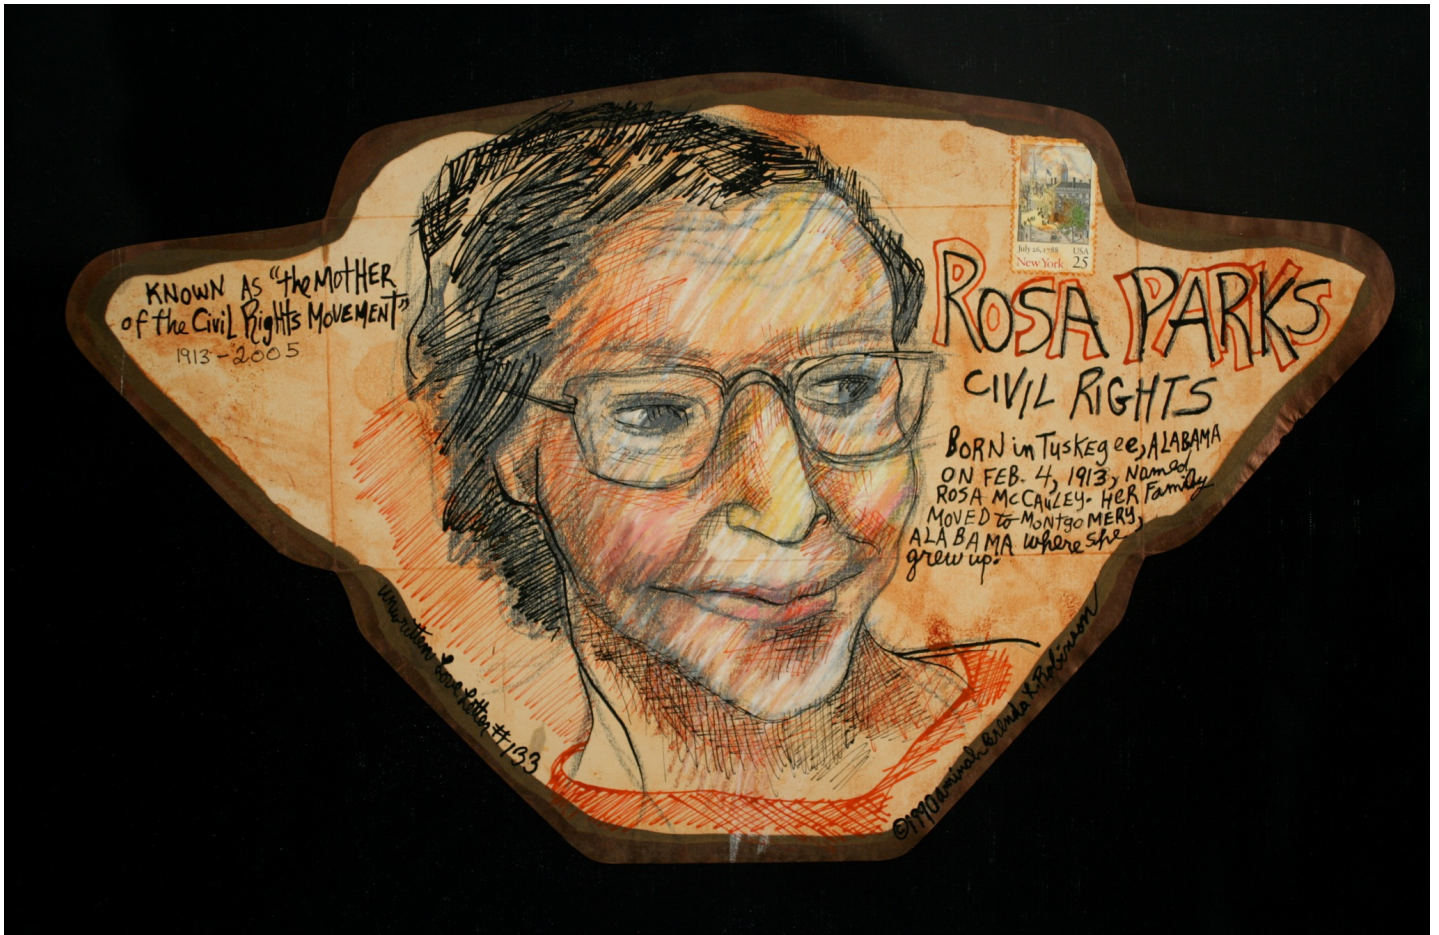 KNOWN AS "the MOTHER
of the Civil Rights MOVEMENT"
1913-2005
July 26, 1788 USA
New York 25
ROSA PARKS
CIVIL RIGHTS
BORN in Tuskegee, ALABAMA
ON FEB. 4, 1913, Named
ROSA McCAULEY. HER Family
MOVED to MONTgoMERY,
ALABAMA where she
grew up.
Unwritten Love Letter #133
©1990 Aminah Brenda L Robinson